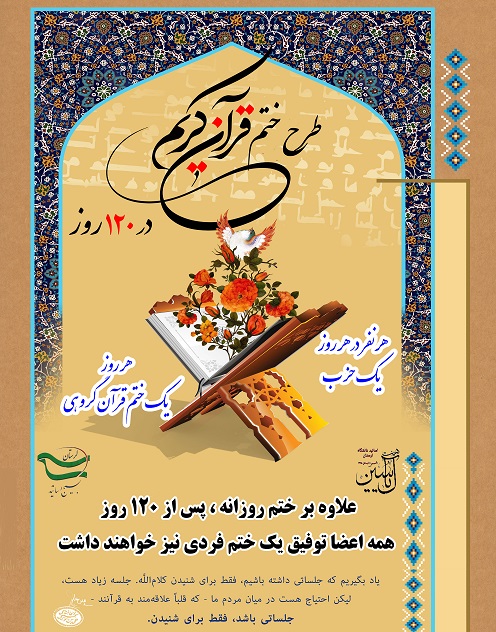 طرح ختم قرآن کریم
در ۱۲۰ روز
هر نفر در هر روز
یک حزب
هر روز
یک ختم قرآن گروهی
لرستان
بسیج اساتید
اساتید دانشگاه
لرستان
آل یاسین
علاوه بر ختم روزانه ، پس از ۱۲۰ روز
همه اعضا توفیق یک ختم فردی نیز خواهند داشت
یاد بگیریم که جلساتی داشته باشیم، فقط برای شنیدن کلام‌الله. جلسه زیاد هست،
لیکن احتیاج هست در میان مردم ما - که قلباً علاقه‌مند به قرآنند -
جلساتی باشد، فقط برای شنیدن.